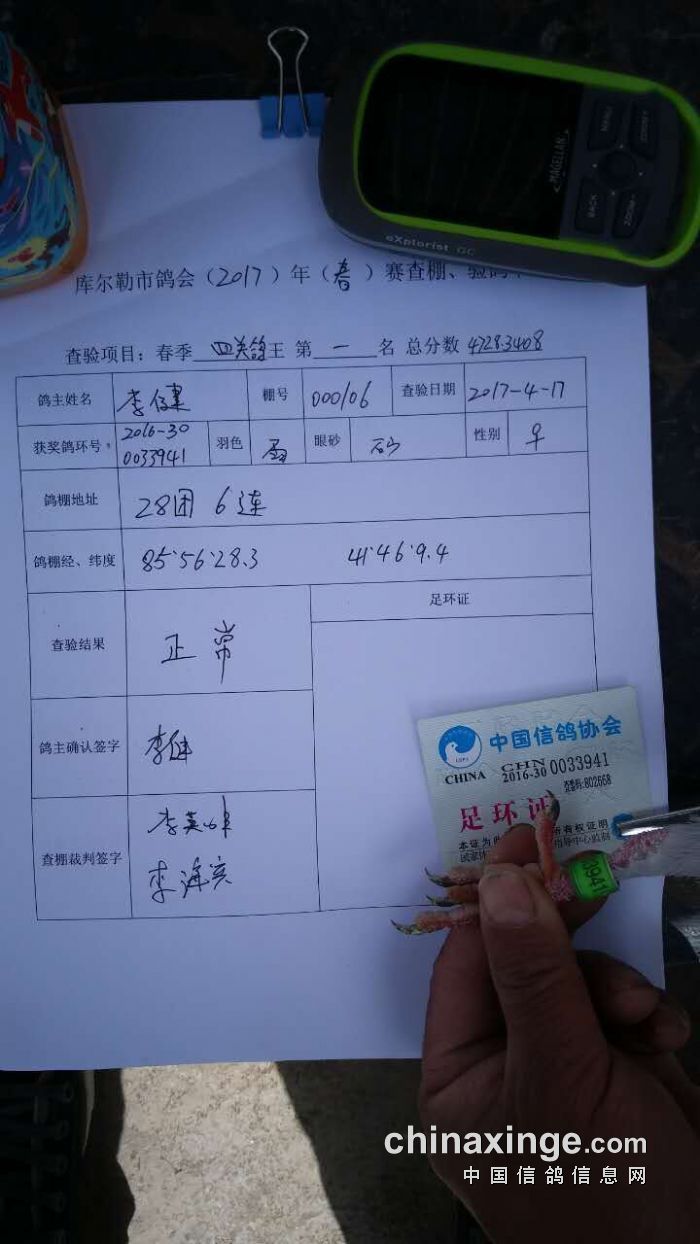 MAGELLAN
MENU
BACK
eXplorist GC
库尔勒市鸽会（2017）年（春）赛查棚、验鸽
查验项目：春季 四关鸽王 第 一 名 总分数 4728.3408
鸽主姓名 李健 棚号 000106 查验日期 2017-4-17
获奖鸽环号 2016-30 0033941 羽色 雨 眼砂 砂 性别 ♀
鸽棚地址 28团 6连
鸽棚经、纬度 85°56'28.3 41°46'9.4
查验结果 正常
足环证
鸽主确认签字 李健
查棚裁判签字
中国信鸽协会
CHINA
CHN
2016-30 0033941
802668
足环证
3941
chinaxinge.com
中国信鸽信息网